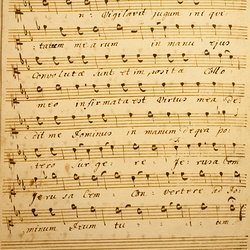 n: Vigilavit jugum ini qui
tatum mearum in manu ejus
Convolutæ sunt et impositæ Collo
meo infirmata est Virtus mea De:
dit me Dominus in manum de qua po:
tero surgere Jerusalem
Jerusalem Convertere ad Do:
minum Deum tuum